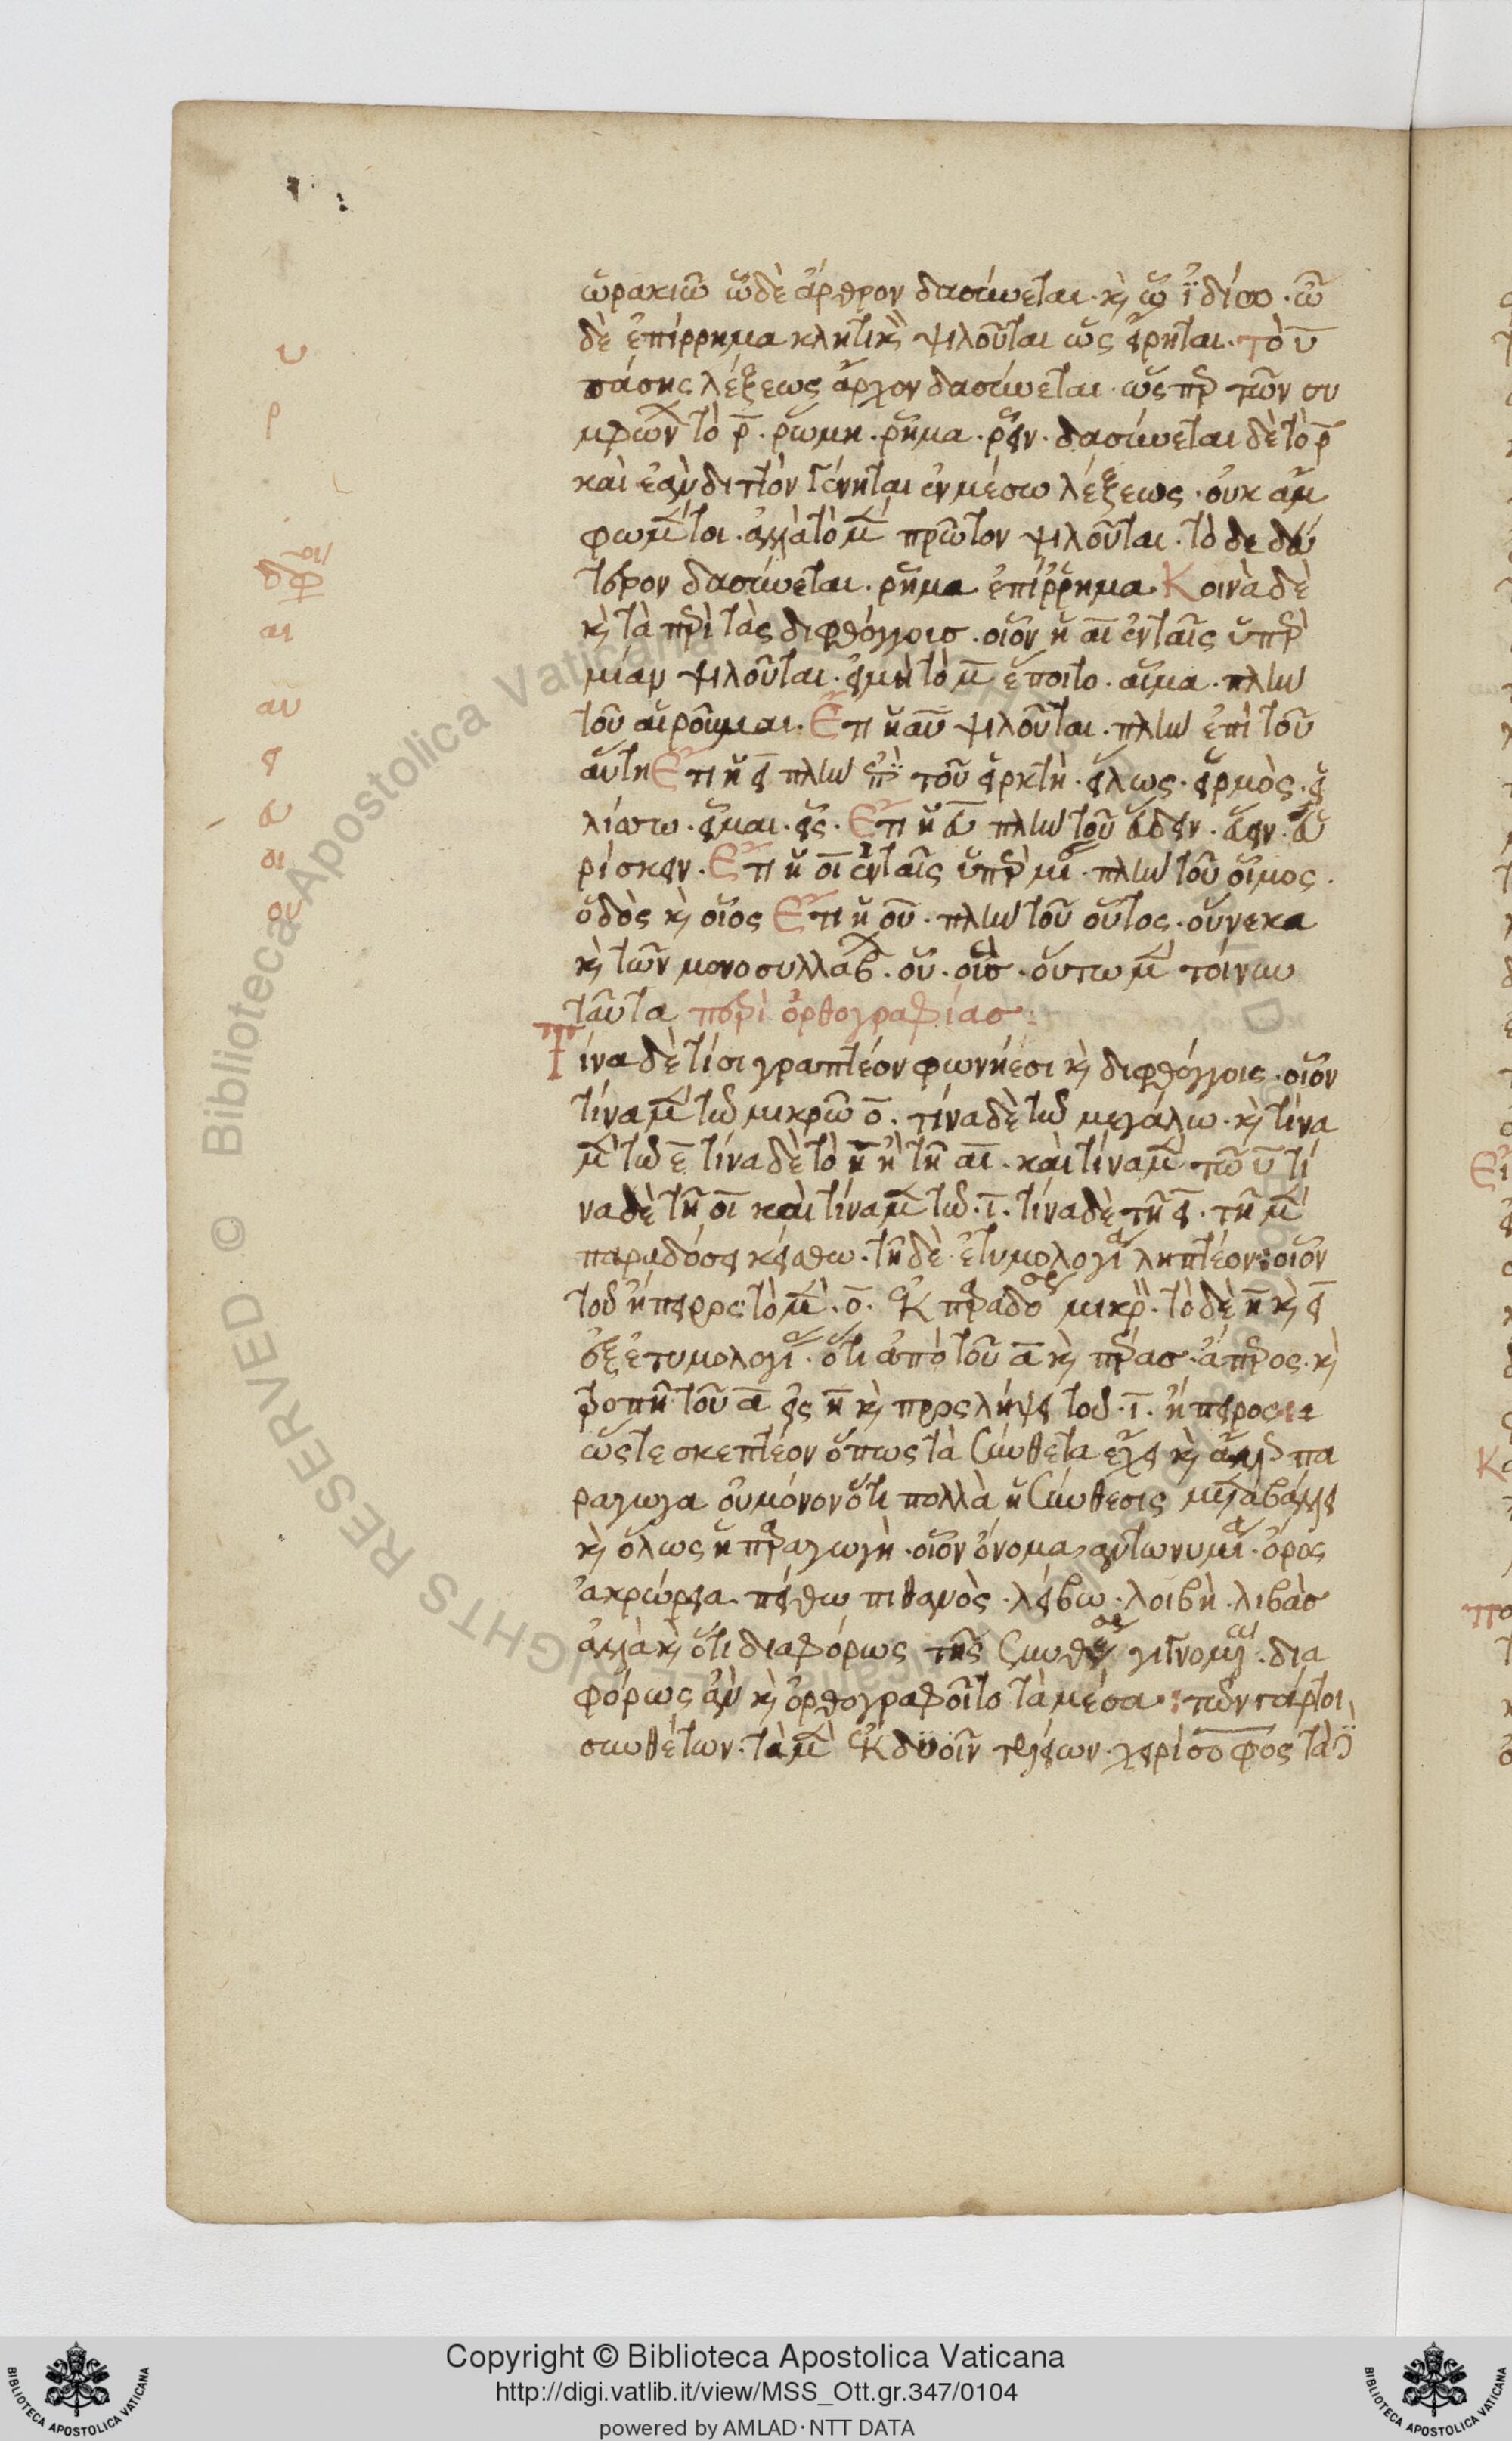 ὡρακιῶ ὧ δὲ ἄρθρον δασύνεται· κ(αὶ) ᾧ ἰδίω· ὦ
δὲ ἐπίρρημα κλητικ(ὸν) ψιλοῦται ὡς εἴρηται· τὸ υ
πάσης λέξεως ἄρχον δασύνεται· ὥσπερ τῶν συ
μφών(ων) τὸ ρ· ῥώμη· ῥῆμα· ῥεῖν· δασύνεται δὲ τὸ ρ
καὶ ἐὰν διττὸν γένηται ἐν μέσω λέξεως· οὐκ ἀμ
φω μέντοι· ἀλλὰ τὸ μὲν πρῶτον ψιλοῦται· τὸ δε δεύ
τερον δασύνεται· ῥῆμα ἐπίρρημα Κοινὰ δὲ
κ(αὶ) τὰ περὶ τὰς διφθόγγους· οἷον ἡ αι ἐν ταῖς ὑπὲρ
μίαν ψιλοῦται· εἰ μὴ τὸ μ ἕποιτο· αἷμα· πλὴν
τοῦ αἱροῦμαι· Ἔτι ἡ αυ ψιλοῦται· πλὴν ἐπὶ τοῦ
αὕτη Ἔτι ἡ ει πλὴν ἐπὶ τοῦ εἱρκτὴ· εἵλως· εἱρμὸς· εἱ
λίσσω· εἷμαι· εἷς· Ἔτι ἡ ευ πλὴν τοῦ εὕδειν· εὕειν· εὑ
ρίσκειν· Ἔτι ἡ οι ἐν ταῖς ὑπὲρ μίαν· πλὴν τοῦ οἷμος·
ὁδὸς κ(αὶ) οἷος Ἔτι ἡ ου· πλὴν τοῦ οὗτος· οὕνεκα
κ(αὶ) τῶν μονοσυλλάβ(ων)· οὗ· οἷς· οὕτω μὲν τοίνυν
ταῦτα περὶ ὀρθογραφίας:
Τίνα δὲ τίσι γραπτέον φωνήεσι κ(αὶ) διφθόγγοις· οἷον
τίνα μὲν τῶ μικρῶ ο· τίνα δὲ τῶ μεγάλω· κ(αὶ) τίνα
μὲν τῶ ε τίνα δὲ τὸ η ἢ τῆ αι· καὶ τίνα μὲν τῶ υ τί
να δὲ τῆ οι καὶ τίνα μὲν τῶ· ι· τίνα δὲ τῆ ει· τῆ μὲν
παραδόσει κείσθω· τῆ δὲ ἐτυμολογία ληπτέον: οἷον
τοῦ ἤπειρος τὸ μὲν· ο· ἐκ παραδόσεως μικρὸν· τὸ δὲ η κ(αὶ) ει
ἐξ ἐτυμολογίας· ὅτι ἀπὸ τοῦ α κ(αὶ) πέρας· ἄπερος· κ(αὶ)
τροπῆ τοῦ α εἰς η κ(αὶ) προσλήψει τοῦ· ι· ἤπειρος:
ὥστε σκεπτέον ὅπως τὰ σύνθετα ἔχει κ(αὶ) ἁπλῶς πα
ράγωγα οὐ μόνον ὅτι πολλὰ ἡ σύνθεσις μεταβάλλει
κ(αὶ) ὅλως ἡ παραγωγὴ· οἷον ὄνομα, ἀντωνυμία· ὄρος
ἀκρώρεια· πείθω πιθανὸς· λείβω· λοιβὴ· λιβὰς
ἀλλὰ κ(αὶ) ὅτι διαφόρως τῆς συνθέσεως γινομένης· δια
φόρως ἂν κ(αὶ) ὀρθογραφοῖτο τὰ μέσα: τῶν γάρ τοι
συνθέτων· τὰ μὲν ἐκ δυοῖν τελείων· χειρίσοφος τὰ
υ
ρ
διφ
αι
αυ
ει
ευ
οι
ου
Copyright © Biblioteca Apostolica Vaticana
http://digi.vatlib.it/view/MSS_Ott.gr.347/0104
powered by AMLAD·NTT DATA